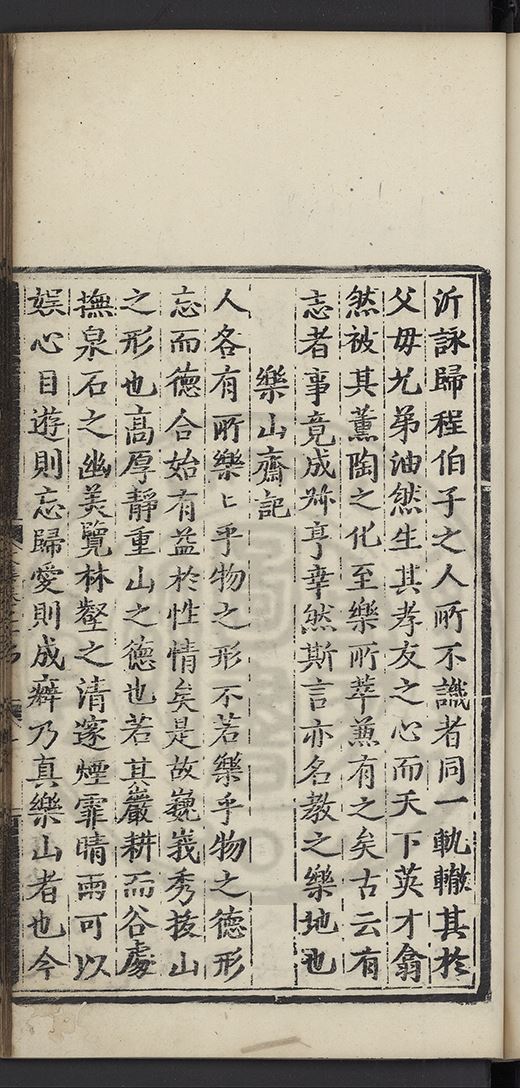 沂詠歸程伯子之人所不識者同一軌轍其於
父母兄弟油然生其孝友之心而天下英才翕
然被其薰陶之化至樂所萃兼有之矣古云有
志者事竟成弥亨幸然斯言亦名教之樂地也
樂山齋記
人各有所樂〻乎物之形不若樂乎物之德形
忘而德合始有益於性情矣是故巍峩秀拔山
之形也高厚靜重山之德也若其巖耕而谷處
撫泉石之幽美覽林壑之清邃煙霏晴雨可以
娱心目遊則忘歸愛則成癖乃真樂山者也今